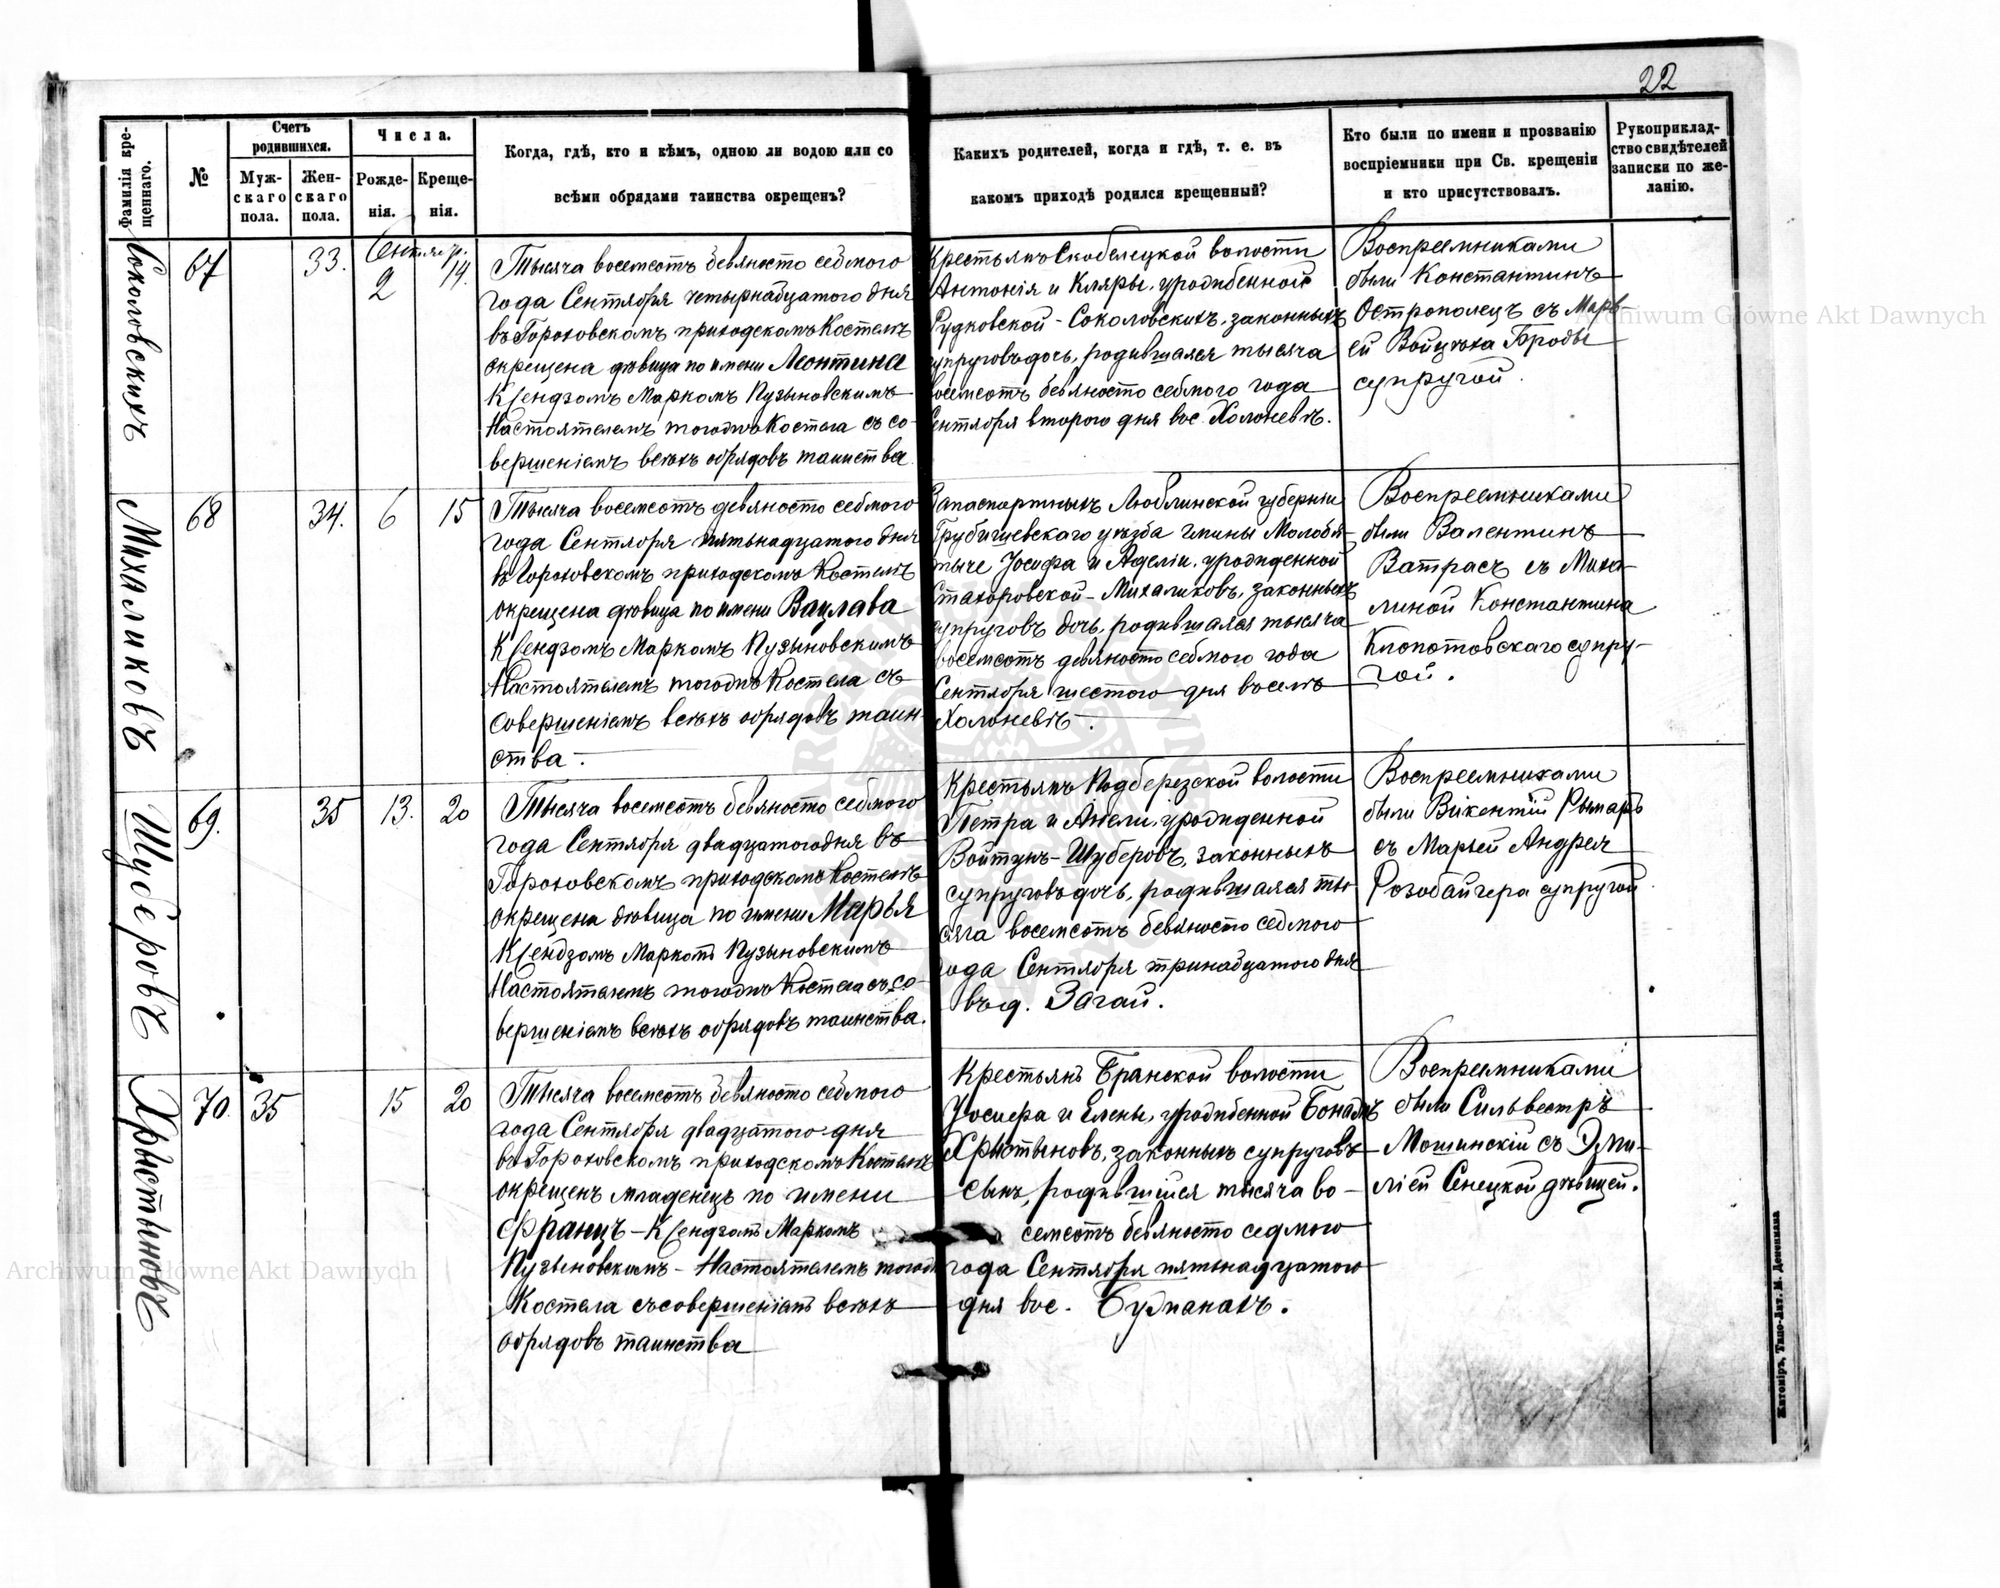 22
Фамилія кре-
щеннаго.
№
Счетъ
родившихся.
Муж-
скаго
пола.
Жен-
скаго
пола.
Числа.
Рожде-
нія.
Креще-
нія.
Когда, гдѣ, кто и кѣмъ, одною ли водою или со
всѣми обрядами таинства окрещенъ?
Какихъ родителей, когда и гдѣ, т. е. въ
какомъ приходѣ родился крещенный?
Кто были по имени и прозванію
воспріемники при Св. крещеніи
и кто присутствовалъ.
Рукоприклад-
ство свидѣтелей
записки по же-
ланію.
Соколовскихъ
67
33.
Сентябр.
2
14.
Тысяча восемсотъ девяносто седмого
года Сентября четырнадцатого дня
въ Гороховскомъ приходскомъ Костелѣ
окрещена дѣвица по имени Леонтина
Ксендзомъ Маркомъ Пузыновскимъ
Настоятелемъ тогоднъ Костела съ со-
вершеніемъ всѣхъ обрядовъ таинства
Крестьянъ Скобелецкой волости
Антонія и Кляры, урожденной
Рудковской - Соколовскихъ, законныхъ
супруговъ дочь, родившаяся тысяча
восемсотъ девяносто седмого года
Сентября второго дня вос. Холоневѣ.
Воспреемниками
были Константинъ
Острополецъ съ Марь-
ей Войцѣха Бороды
супругой.
Михаликовъ
68
34.
6
15
Тысяча восемсотъ девяносто седмого
года Сентября пятьнадцатого дня
въ Гороховскомъ приходскомъ Костелѣ
окрещена дѣвица по имени Вацлава
Ксендзомъ Маркомъ Пузыновскимъ
Настоятелемъ тогоднъ Костела съ
совершеніемъ всѣхъ обрядовъ таин-
ства.
Запаспортныхъ Люблинской губерніи
Грубишевскаго уѣзда гмины Молодя-
тыче Іосифа и Аделіи, урожденной
Стахоровской - Михаликовъ, законныхъ
супруговъ дочь, родившаяся тысяча
восемсотъ девяносто седмого года
Сентября шестого дня въ селѣ
Холоневѣ.
Воспреемниками
были Валентинъ
Ватрасъ съ Миха-
линой Константина
Клопотовскаго супру-
гой.
Шуберовъ
69.
35
13.
20
Тысяча восемсотъ девяносто седмого
года Сентября двадцатого дня въ
Гороховскомъ приходскомъ Костелѣ
окрещена дѣвица по имени Марья
Ксендзомъ Маркомъ Пузыновскимъ
Настоятелемъ тогоднъ Костела съ со-
вершеніемъ всѣхъ обрядовъ таинства.
Крестьянъ Подберезской волости
Петра и Анели, урожденной
Войтунъ - Шуберовъ, законныхъ
супруговъ дочь, родившаяся ты-
сяча восемсотъ девяносто седмого
года Сентября тринадцатого дня
въ д. Загай.
Воспреемниками
были Викентій Рымаръ
съ Марьей Андрея
Розобайгера супругой
Хрыстыновъ
70.
35
15
20
Тысяча восемсотъ девяносто седмого
года Сентября двадцатого дня
въ Гороховскомъ приходскомъ Костелѣ
окрещенъ младенецъ по имени
Францъ - Ксендзомъ Маркомъ
Пузыновскимъ - Настоятелемъ тогоднъ
Костела съ совершеніемъ всѣхъ
обрядовъ таинства
Крестьянъ Бранской волости
Іосифа и Елены, урожденной
Хрыстыновъ, законныхъ супруговъ
сынъ, родившійся тысяча во-
семсотъ девяносто седмого
года Сентября пятьнадцатого
дня вос.
Воспреемниками
были Сильвестръ
Мошинскій съ Эми-
ліей Сенецкой дѣвицей.
Житоміръ, Типо-Лит. М. Дененмана
Archiwum Główne Akt Dawnych
Archiwum Główne Akt Dawnych